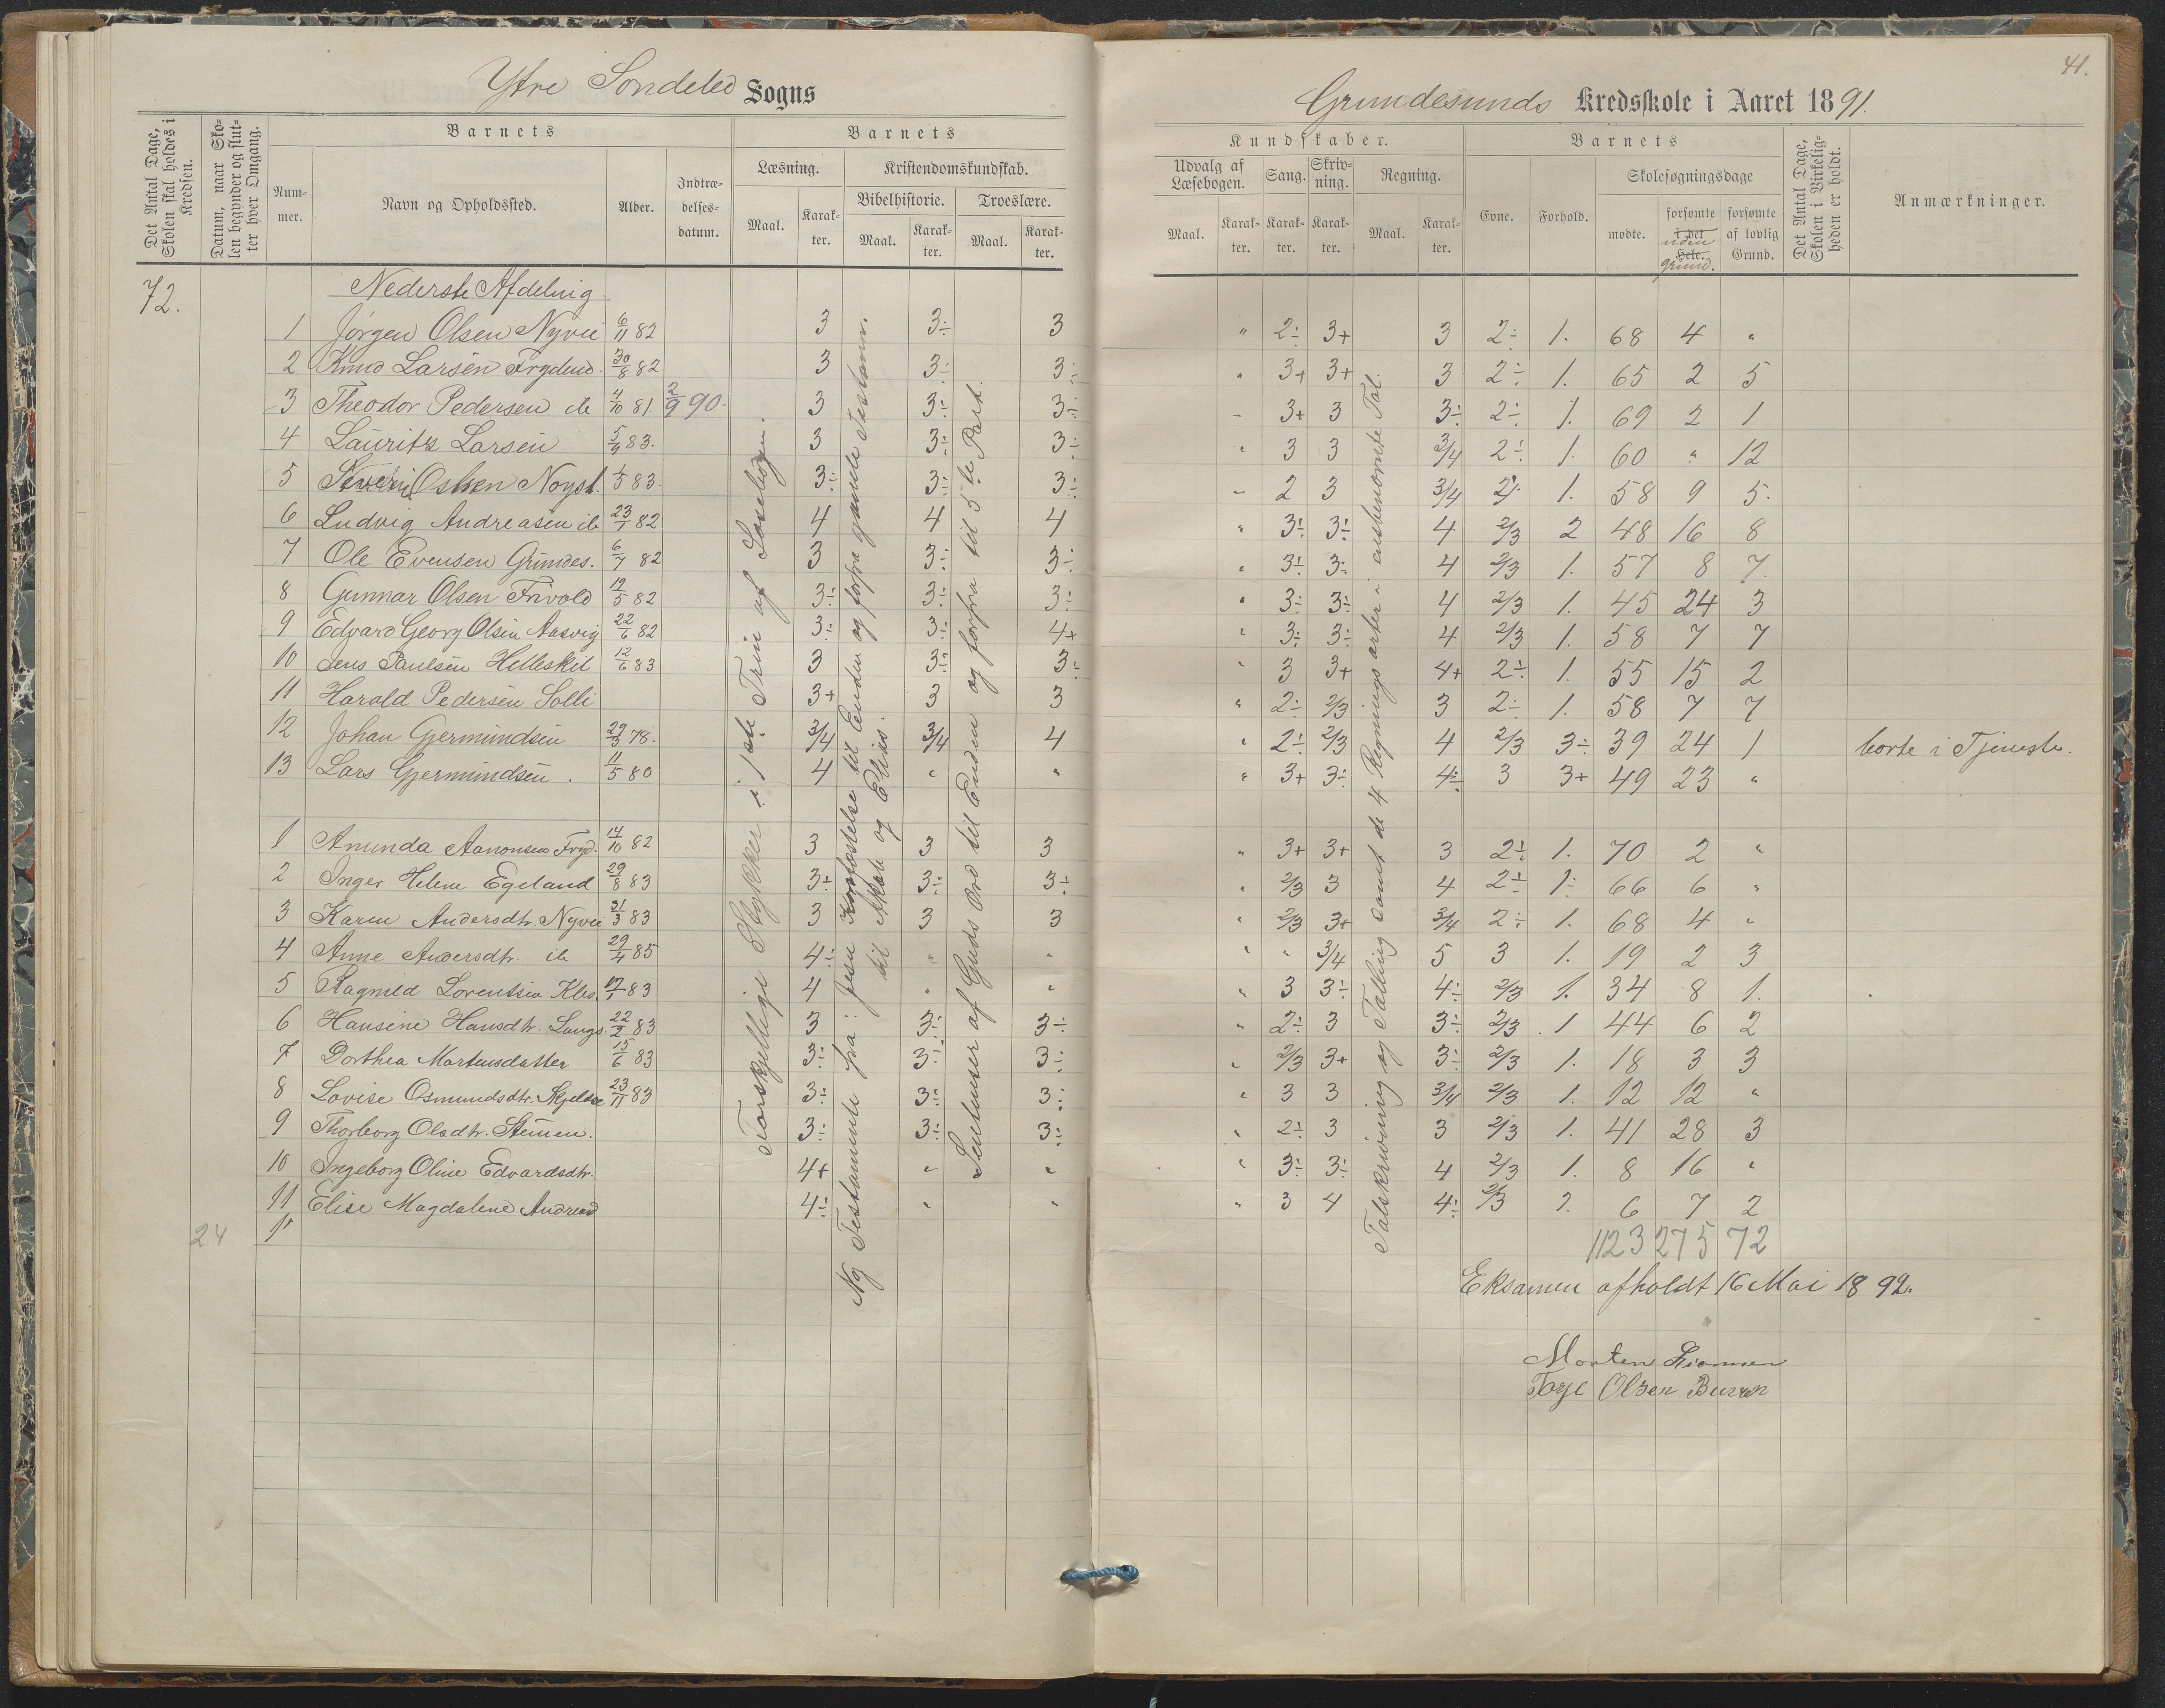 Ytre Søndeled Sogns
Grundesunds Kredsskole i Aaret 1891.
41.
Det Antal Dage, Skolen skal holdes i Kredsen.
Datum, naar Skolen begynder og slutter hver Omgang.
Barnets
Nummer.
Navn og Opholdssted.
Alder.
Indtrædelsesdatum.
Barnets
Læsning.
Maal.
Karakter.
Kristendomskundskab.
Bibelhistorie.
Maal.
Karakter.
Troeslære.
Maal.
Karakter.
Kundskaber.
Udvalg af Læsebogen.
Maal.
Karakter.
Sang.
Karakter.
Skrivning.
Karakter.
Regning.
Maal.
Karakter.
Barnets
Evne.
Forhold.
Skolesøgningsdage
mødte.
forsømte i det Hele.
uden grund.
forsømte af lovlig Grund.
Det Antal Dage, Skolen i Virkeligheden er holdt.
Anmærkninger.
72.
Nederste Afdeling
1 Jørgen Olsen Nyvei 6/11 82 3 3÷ 3 " 2÷ 3+ 3 2÷ 1. 68 4 "
2 Knud Larsen Frydend. 30/8 82 3 3÷ 3÷ " 3+ 3+ 3 2÷ 1. 65 2 5
3 Theodor Pedersen ib 4/10 81. 2/9 90. 3 3÷ 3÷ " 3+ 3 3÷ 2÷ 1. 69 2 1
4 Lauritz Larsen 5/9 83. 3 3÷ 3÷ " 3 3 3/4 2÷ 1. 60 " 12
5 Severin Olsen Noyst. 1/5 83. 3÷ 3÷ 3÷ " 2 3 3/4 2÷ 1. 58 9 5.
6 Ludvig Andreasen ib 23/1 82 4 4 4 " 3÷ 3÷ 4 2/3 2 48 16 8
7 Ole Evensen Grundes. 6/7 82 3 3÷ 3÷ " 3÷ 3÷ 4 2/3 1. 57 8 7.
8 Gunnar Olsen Frivold 12/5 82 3÷ 3÷ 3÷ " 3÷ 3÷ 4 2/3 1. 45 24 3
9 Edvard Georg Olsen Aasvig 22/6 82 3÷ 3÷ 4+ " 3÷ 3÷ 4 2/3 1. 58 7 7
10 Jens Paulsen Helleskil 12/6 83 3 3÷ 3÷ " 3 3+ 4+ 2÷ 1. 55 15 2
11 Harald Pedersen Solli 3+ 3 3 " 2÷ 2/3 3 2÷ 1. 58 7 7
12 Johan Gjermundsen 29/3 78. 3/4 3/4 4 " 2÷ 2/3 4 2/3 3÷ 39 24 1 borte i Tjeneste.
13 Lars Gjermundsen. 11/5 80 4 " " " 3+ 3÷ 4÷ 3 3+ 49 23 "
1 Anunda Aanonsen Fryd. 14/10 82 3 3 3 " 3+ 3+ 3 2÷ 1. 70 2 "
2 Inger Helene Egeland 29/8 83 3÷ 3÷ 3÷ " 2/3 3 4 2÷ 1÷ 66 6 "
3 Karen Andersdtr. Nyvei 31/3 83 3 3 3 " 2/3 3+ 3/4 2÷ 1. 68 4 "
4 Anne Andersdtr. ib 29/4 85 4÷ " " " " 3/4 5 3 1. 19 2 3
5 Ragnild Lorentsen Klev. 17/1 83 4 " " " 3 3÷ 4÷ 2/3 1. 34 8 1.
6 Hansine Hansdtr. Langs. 22/2 83 3 3÷ 3÷ " 2÷ 3 3÷ 2/3 1 44 6 2
7 Dorthea Mortensdatter 15/6 83 3÷ 3÷ 3÷ " 2/3 3+ 3÷ 2/3 1. 18 3 3
8 Lovise Osmundsdtr. 23/11 83 3÷ 3÷ 3÷ " 3 3 3/4 2/3 1. 12 12 "
9 Thorborg Olsdtr. Stenen. 3÷ 3÷ 3÷ " 2÷ 3 3 2/3 1. 41 28 3
10 Ingeborg Oline Edvardsdtr. 4+ " " " 3÷ 3÷ 4 2/3 1. 8 16 "
11 Elise Magdalene Andreasd 4÷ " " " 3 4 4÷ 2/3 1. 6 7 2
24
1123 275 72
Forskjellige Stykker i 1ste Trin af Læsebogen.
Ny Testamente fra: Jesu til Enden og forfra gamle Testam.
til Akab og Elias.
Sentenser af Guds Ord til Enden og forfra til 5te Part.
Talskrivning og Tælling samt de 4 Regningsarter i ensbenævnte Tal.
Eksamen afholdt 16 Mai 1892.
Morten
Olsen